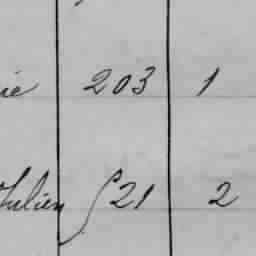 ie 203 1
Julien 521 2